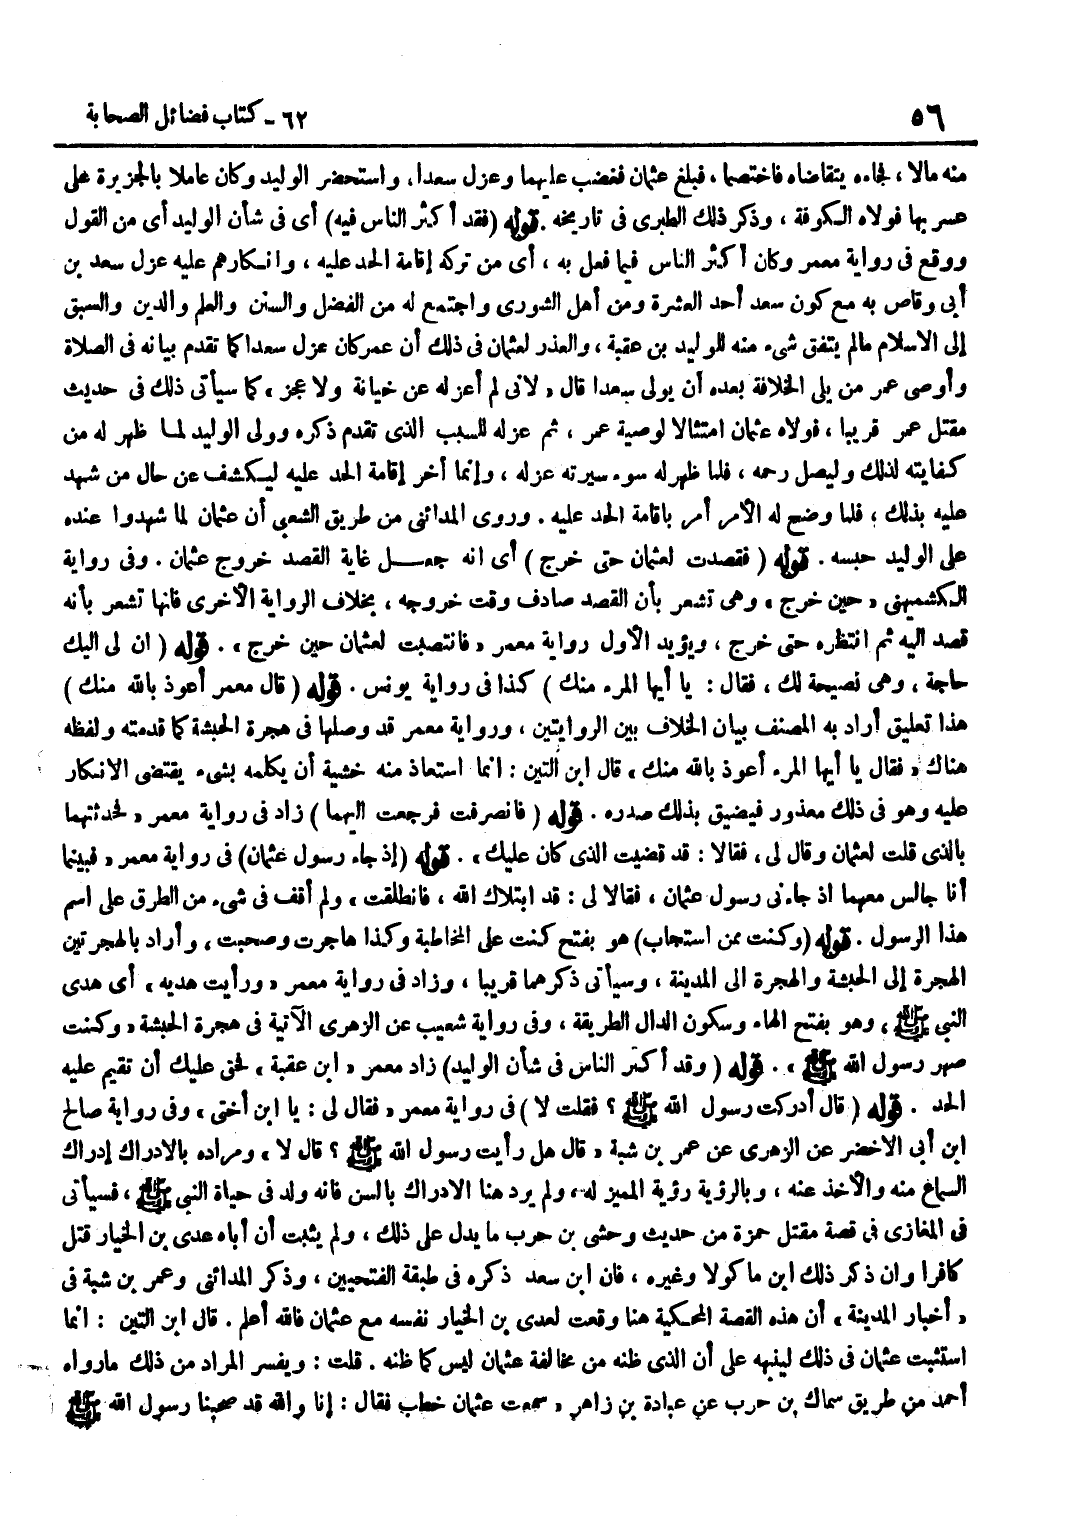 ٥٦
٦٢ - كتاب فضائل الصحابة
منه مالا ، فجاءه يتقاضاه فاختصما ، فبلغ عثمان فغضب عليهما وعزل سعدا، واستحضر الوليد وكان عاملا بالجزيرة على
عسربها فولاه الكوفة ، وذكر ذلك الطبرى فى تاريخه . قوله (فقد أكثر الناس فيه) أى فى شأن الوليد أى من القول
ووقع فى رواية معمر وكان أكثر الناس فيما فعل به ، أى من تركه إقامة الحد عليه ، وانكارهم عليه عزل سعد بن
أبى وقاص به مع كون سعد أحد العشرة ومن أهل الشورى واجتمع له من الفضل والسنن والعلم والدين والسبق
إلى الاسلام مالم يتفق شىء منه للوليد بن عقبة ، والعذر لعثمان فى ذلك أن عمر كان عزل سعدا كما تقدم بيانه فى الصلاة
وأوصى عمر من يلى الخلافة بعده أن يولى سعدا قال « لانى لم أعزله عن خيانة ولا عجز » كما سيأتى ذلك فى حديث
مقتل عمر قريبا ، فولاه عثمان امتثالا لوصية عمر ، ثم عزله للسبب الذى تقدم ذكره وولى الوليد لما ظهر له من
كفايته لذلك وليصل رحمه ، فلما ظهر له سوء سيرته عزله ، وإنما أخر إقامة الحد عليه ليكشف عن حال من شهد
عليه بذلك ، فلما وضح له الأمر أمر باقامة الحد عليه . وروى المدائنى من طريق الشعبي أن عثمان لما شهدوا عنده
على الوليد حبسه . قوله ( فقصدت لعثمان حتى خرج ) أى انه جعل غاية القصد خروج عثمان . وفى رواية
الكشميهنى « حين خرج » وهى تشعر بأن القصد صادف وقت خروجه ، بخلاف الرواية الأخرى فانها تشعر بأنه
قصد اليه ثم انتظره حتى خرج ، ويؤيد الأول رواية معمر « فانتصبت لعثمان حين خرج » . قوله ( ان لى اليك
حاجة ، وهى نصيحة لك ، فقال : يا أيها المرء منك ) كذا فى رواية يونس . قوله ( قال معمر أعوذ بالله منك )
هذا تعليق أراد به المصنف بيان الخلاف بين الروايتين ، ورواية معمر قد وصلها فى هجرة الحبشة كما قدمته ولفظه
هناك « فقال يا أيها المرء أعوذ بالله منك » قال ابن التين : انما استعاذ منه خشية أن يكلمه بشىء يقتضى الانكار
عليه وهو فى ذلك معذور فيضيق بذلك صدره . قوله ( فانصرفت فرجعت اليهما ) زاد فى رواية معمر « فحدثتهما
بالذى قلت لعثمان وقال لى ، فقالا : قد قضيت الذى كان عليك » . قوله (إذ جاء رسول عثمان) فى رواية معمر « فبينما
أنا جالس معهما اذ جاءنى رسول عثمان ، فقالا لى : قد ابتلاك الله ، فانطلقت » ولم أقف فى شىء من الطرق على اسم
هذا الرسول . قوله (وكنت ممن استجاب) هو بفتح كنت على المخاطبة وكذا هاجرت وصحبت ، وأراد بالهجرتين
الهجرة إلى الحبشة والهجرة الى المدينة ، وسيأتى ذكرهما قريبا ، وزاد فى رواية معمر « ورأيت هديه » أى هدى
النبي ﷺ ، وهو بفتح الهاء وسكون الدال الطريقة ، وفى رواية شعيب عن الزهرى الآتية فى هجرة الحبشة « وكنت
صهر رسول الله ﷺ » . قوله ( وقد أكثر الناس فى شأن الوليد) زاد معمر « ابن عقبة ، فحق عليك أن تقيم عليه
الحد . قوله ( قال أدركت رسول الله ﷺ ؟ فقلت لا ) فى رواية معمر « فقال لى : يا ابن أختى » وفى رواية صالح
ابن أبى الاخضر عن الزهرى عن عمر بن شبة « قال هل رأيت رسول الله ﷺ ؟ قال لا » ومراده بالادراك إدراك
السماع منه والأخذ عنه ، وبالرؤية رؤية المميز له، ولم يرد هنا الادراك بالسن فانه ولد فى حياة النبي ﷺ ، فسيأتى
فى المغازى فى قصة مقتل حمزة من حديث وحشى بن حرب ما يدل على ذلك ، ولم يثبت أن أباه عدى بن الخيار قتل
كافرا وان ذكر ذلك ابن ماكولا وغيره ، فان ابن سعد ذكره فى طبقة الفتحيين ، وذكر المدائنى وعمر بن شبة فى
« أخبار المدينة » أن هذه القصة المحكية هنا وقعت لعدى بن الخيار نفسه مع عثمان فالله أعلم . قال ابن التين : انما
استثبت عثمان فى ذلك لينبهه على أن الذى ظنه من مخالفة عثمان ليس كما ظنه . قلت : ويفسر المراد من ذلك مارواه
أحمد من طريق سماك بن حرب عن عبادة بن زاهر « سمعت عثمان خطاب فقال : إنا والله قد صحبنا رسول الله ﷺ